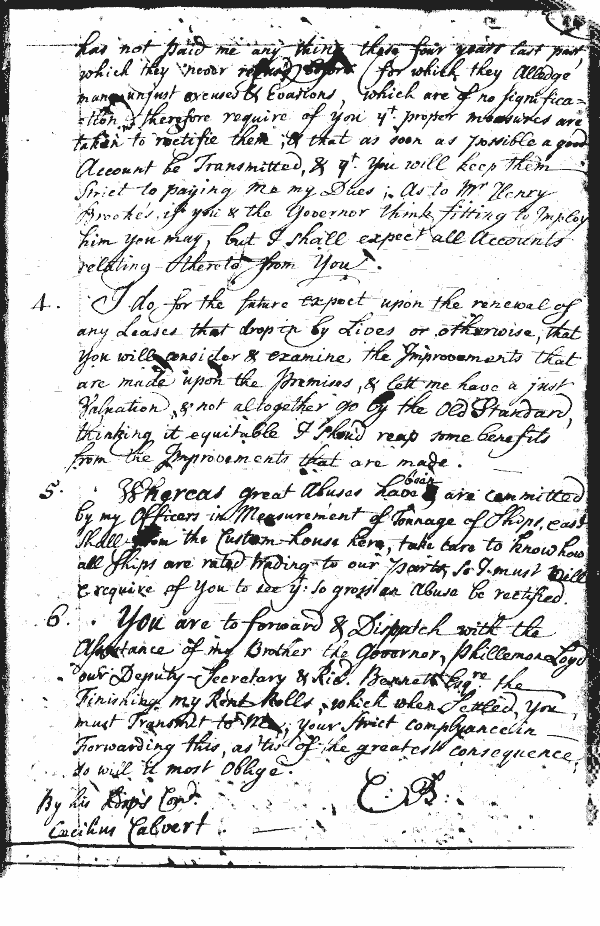 has not paid me any thing these four years last past,
which they never refused before for which they Alledge
many unjust excuses & Evasions, which are of no significa=
=ction I therefore require of you yt. proper measures are
taken to rectifie them, & that as soon as possible a good
Account be Transmitted, & yt. You will keep them
Strict to paying me my Dues; As to Mr. Henry
Brookes, if you & the Governor think fitting to Imploy
him You may, but I shall expect all Accounts
relating thereto from You.
4. I do for the future expect upon the renewal of
any Leases that drop in by Lives or otherwise, that
You will consider & examine the Improvements that
are made upon the Premises, & lett me have a just
Valuation, & not altogether go by the Old Standard,
thinking it equitable I shoud reap some benefits
from the Improvements that are made.
5. Whereas great Abuses have been & are committed
by my Officers in Measurement of Tonnage of Ships,
shall from the Custom-house here, take care to know how
all Ships are rated trading to our parts, so I must & will
require of You to see yt. so gross an Abuse be rectified.
6. You are to forward & Dispatch with the
Assistance of my Brother the Governor, Phillemon Loyd
our Deputy-Secretary & Rid. Bennett Esqre. the
Finishing my Rent Rolls, which when Settled, You
must Transmit to Me, your Strict complyance in
Forwarding this, as 'tis of the greatest consequence,
so will it most Oblige.
C: B:
By his Ldps Comd.
Cæcilius Calvert.